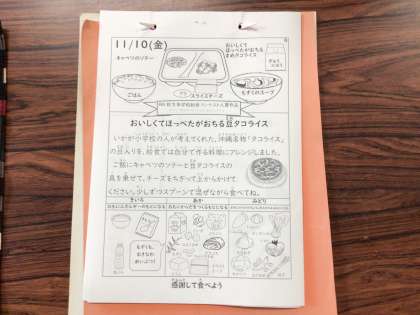 11/10(金)
おいしくて
ほっぺたがおちる
まめタコライス
キャベツのソテー
ぎゅう
にゅう
ごはん
スライスチーズ
もずくのスープ
おいしくてほっぺたがおちる豆タコライス
いかが小学校の人が考えてくれた、沖縄名物「タコライス」
の豆入りを、給食では自分で作る料理にアレンジしました。
ご飯にキャベツのソテーと豆タコライスの
具を乗せて、チーズをちぎって上からかけて
ください。少しずつスプーンで混ぜながら食べてね。
きいろ
あか
みどり
もずくも、
おきなわ
めいぶつ!
感謝して食べよう